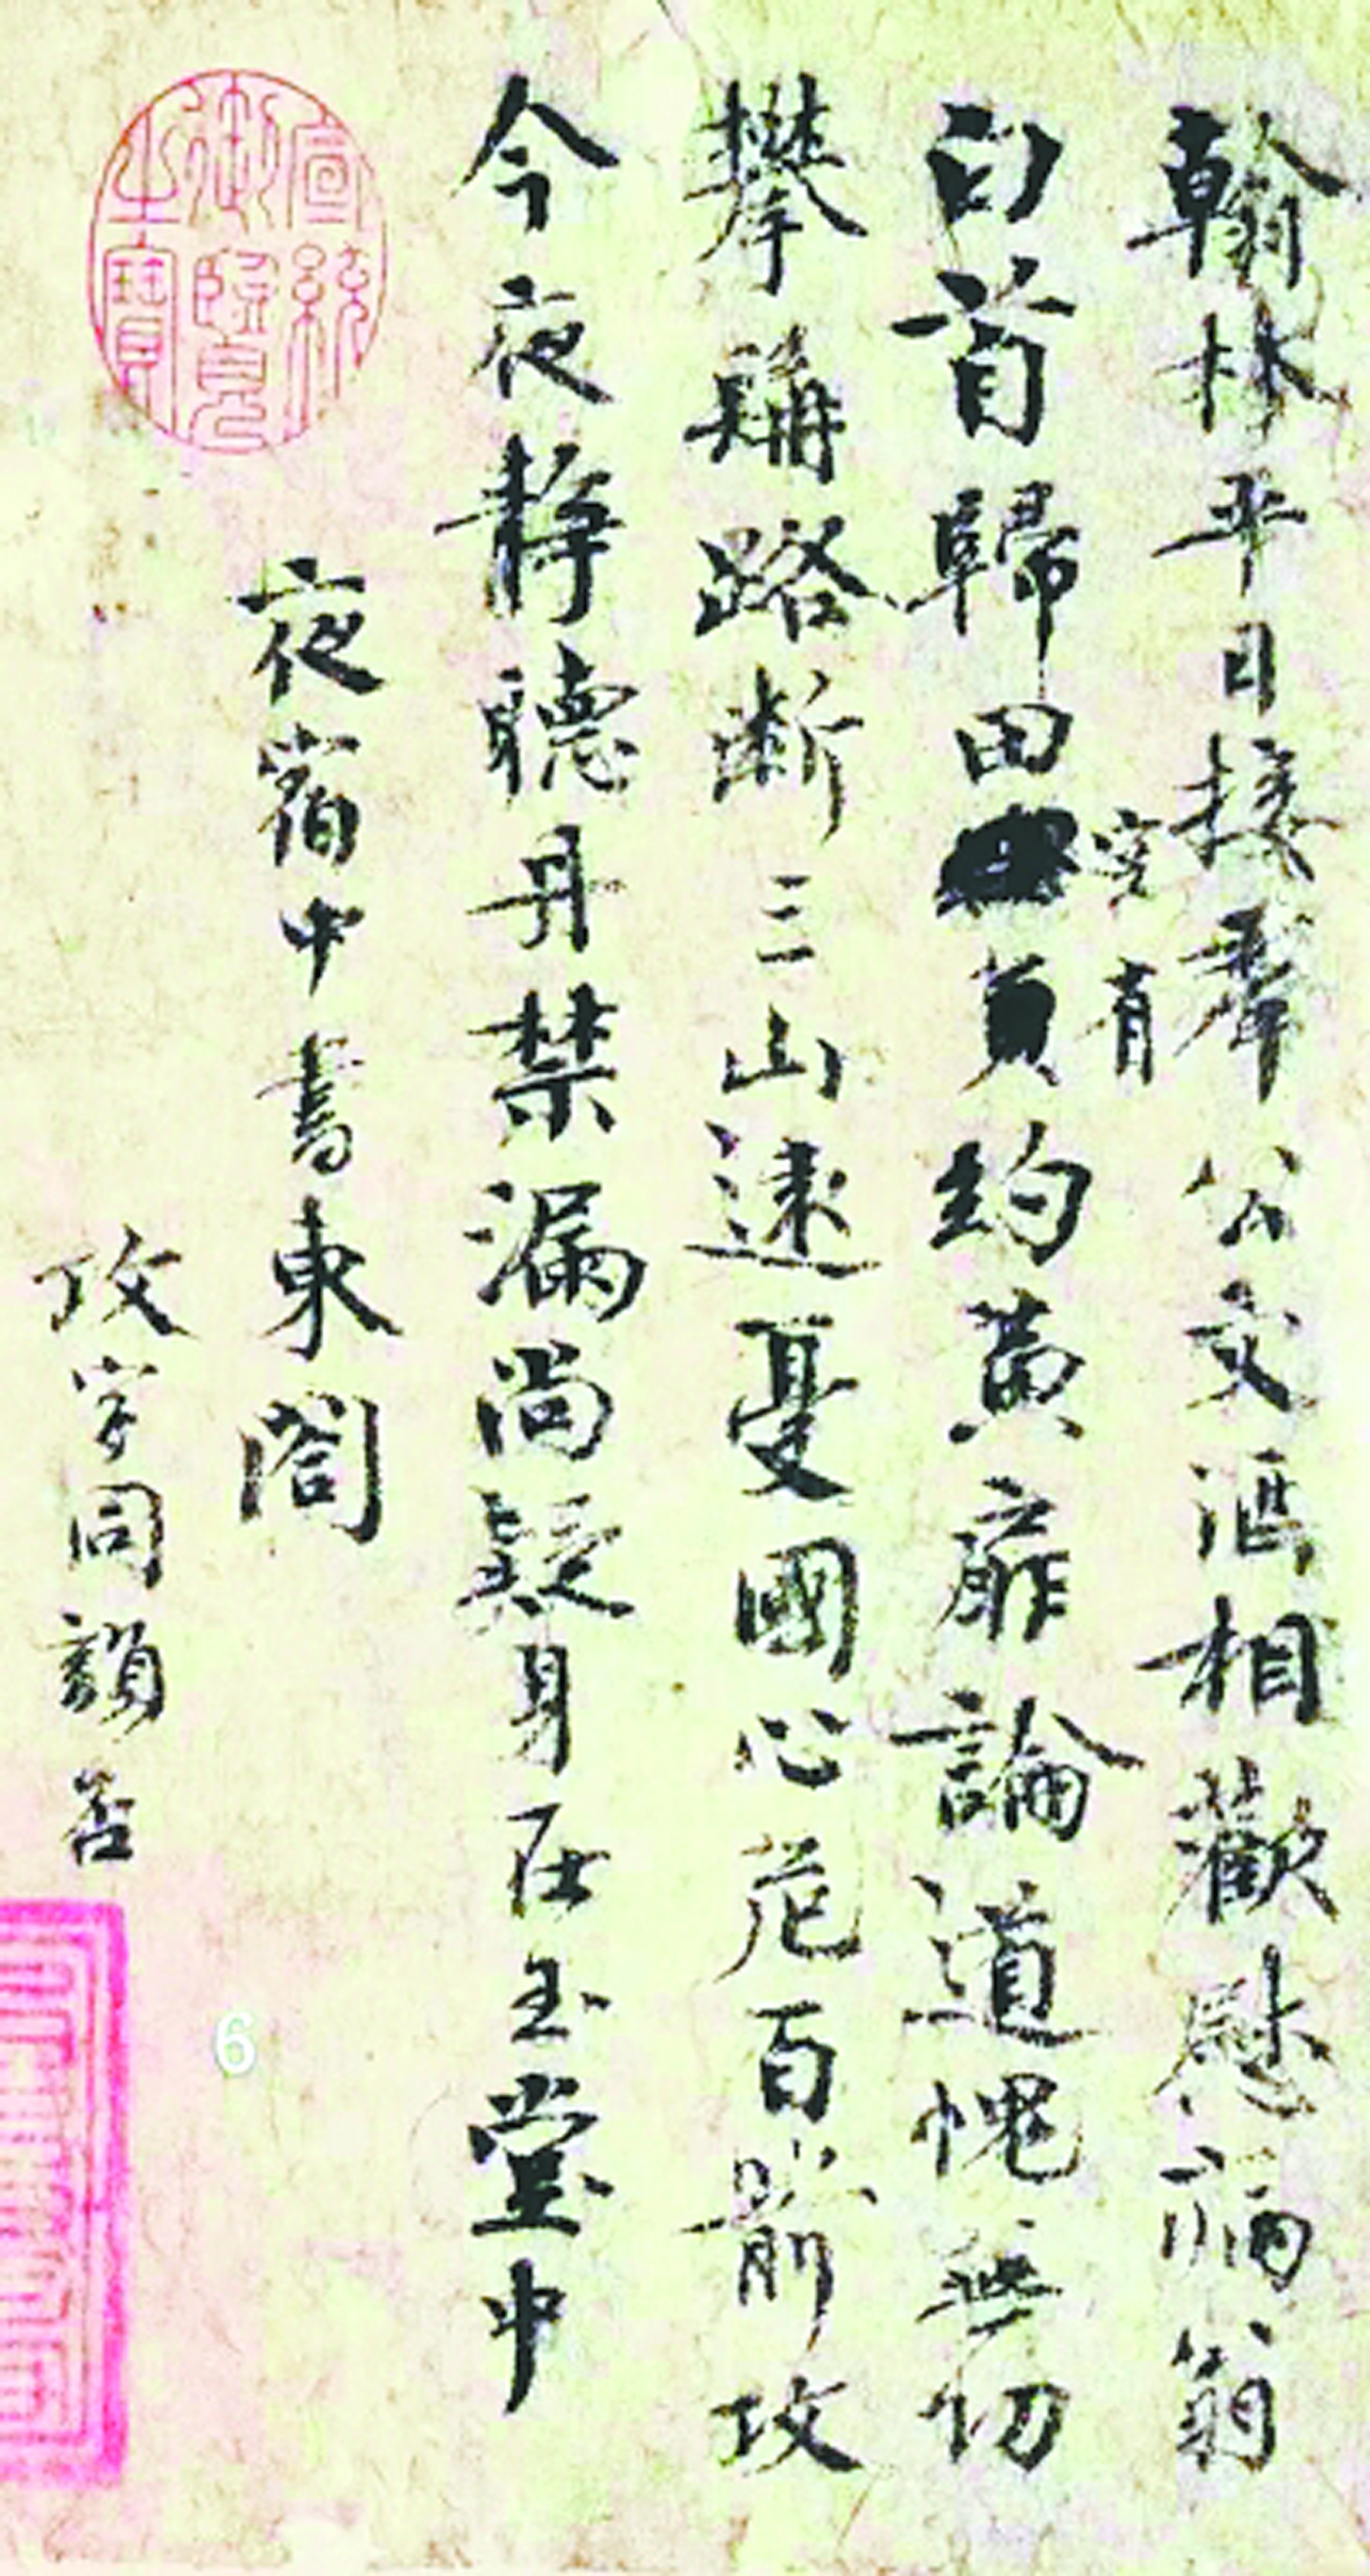 翰林平日接羣公文酒相歡慰病翁
空有
白首歸田約黃扉論道愧無功
攀髯路斷三山遠憂國心危百箭攻
今夜靜聽丹禁漏尚疑身在玉堂中
夜宿中書東閤
攻字同韻否
宣統御覽之寶
6